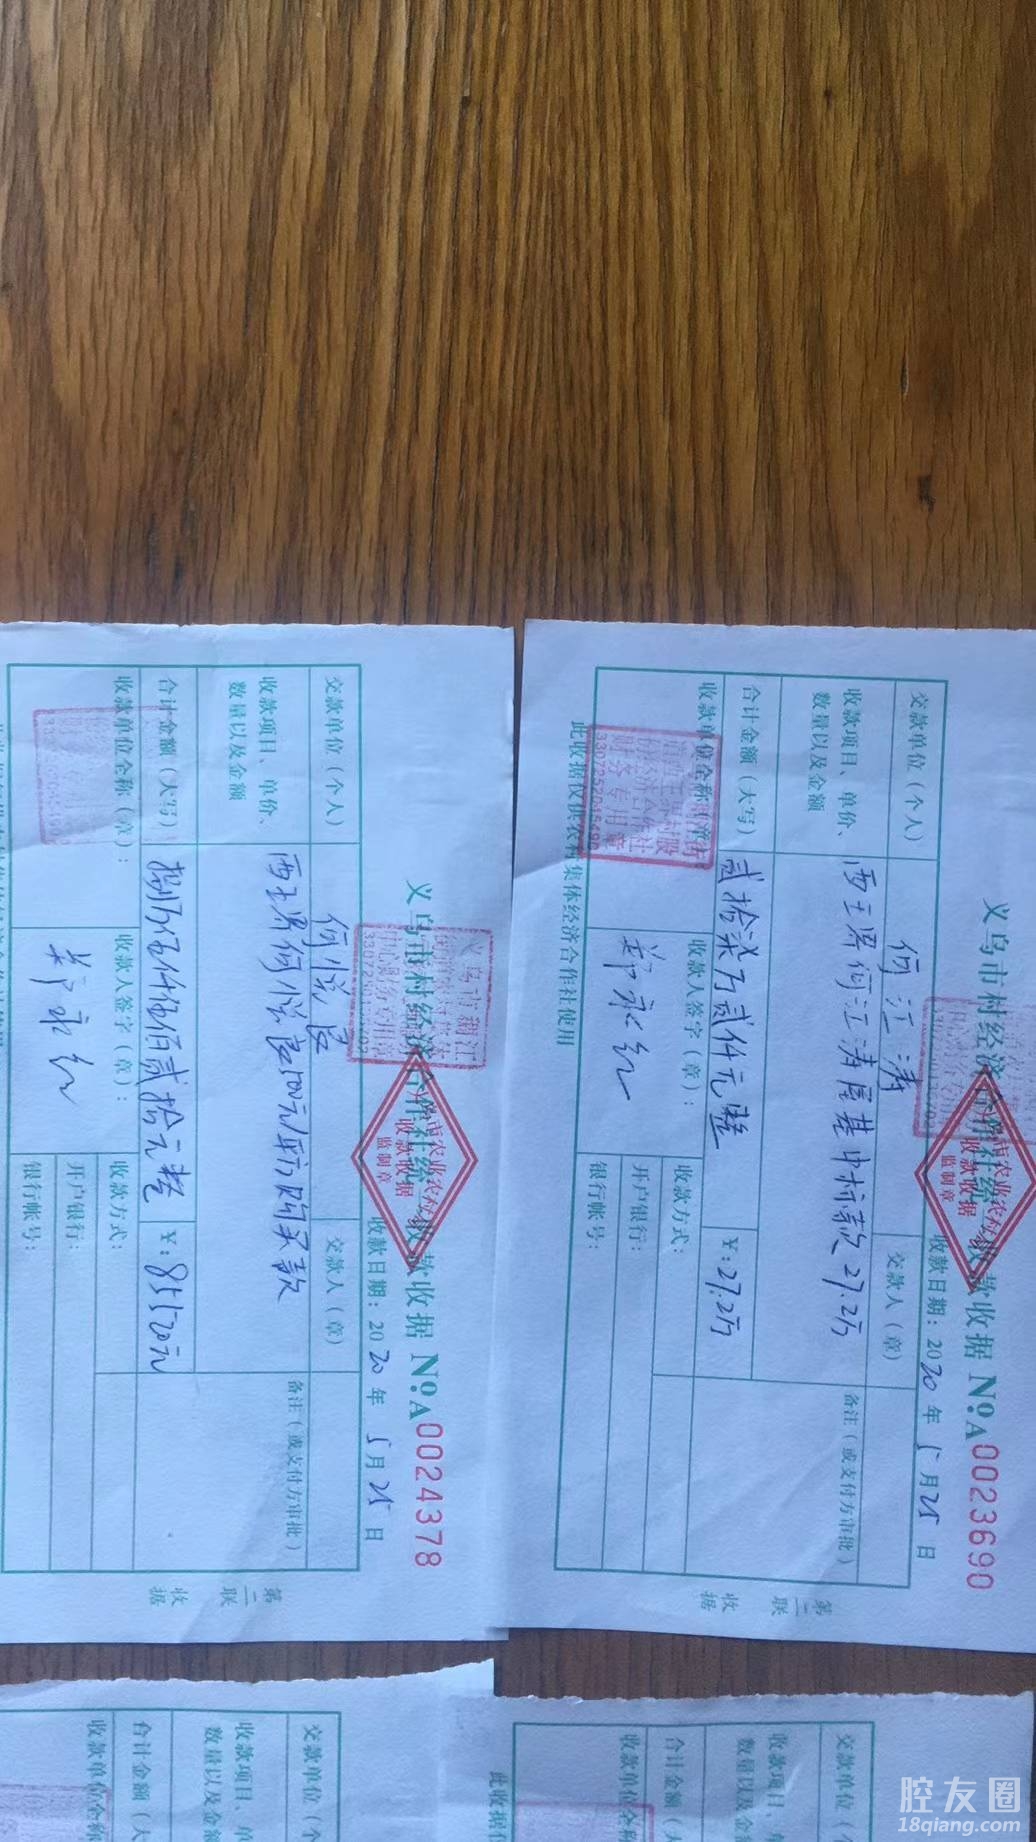 义乌市村经济合作社统一收款收据 NO.A 0023690
收款日期：2020年5月25日
交款单位（个人） 何江涛 交款人（章）
收款项目、单价、数量以及金额 西王界何江涛屋基中标款27.2万
备注（或支付方审批）
合计金额（大写） 贰拾柒万贰仟元整 ￥：27.2万
收款单位全称（章）： 收款人签字（章）： 收款方式：
开户银行：
银行帐号：
此收据仅供农村集体经济合作社使用
第二联 收据
收款收据
监制章
财务专用章
义乌市村经济合作社统一收款收据 NO.A 0024378
收款日期：2020年5月25日
交款单位（个人） 何悦 交款人（章）
收款项目、单价、数量以及金额 西王界何悦 购买款
备注（或支付方审批）
合计金额（大写） 捌万伍仟伍佰贰拾元整 ￥：85520元
收款单位全称（章）： 收款人签字（章）： 收款方式：
开户银行：
银行帐号：
第二联 收据
收款收据
监制章
交款单位（
收款项目、
数量以及金额
合计金额（大
收款单位全称
此收据仅
交款单位（个
收款项目、单
数量以及金额
合计金额（大
收款单位全称
腔友圈
18qiang.com